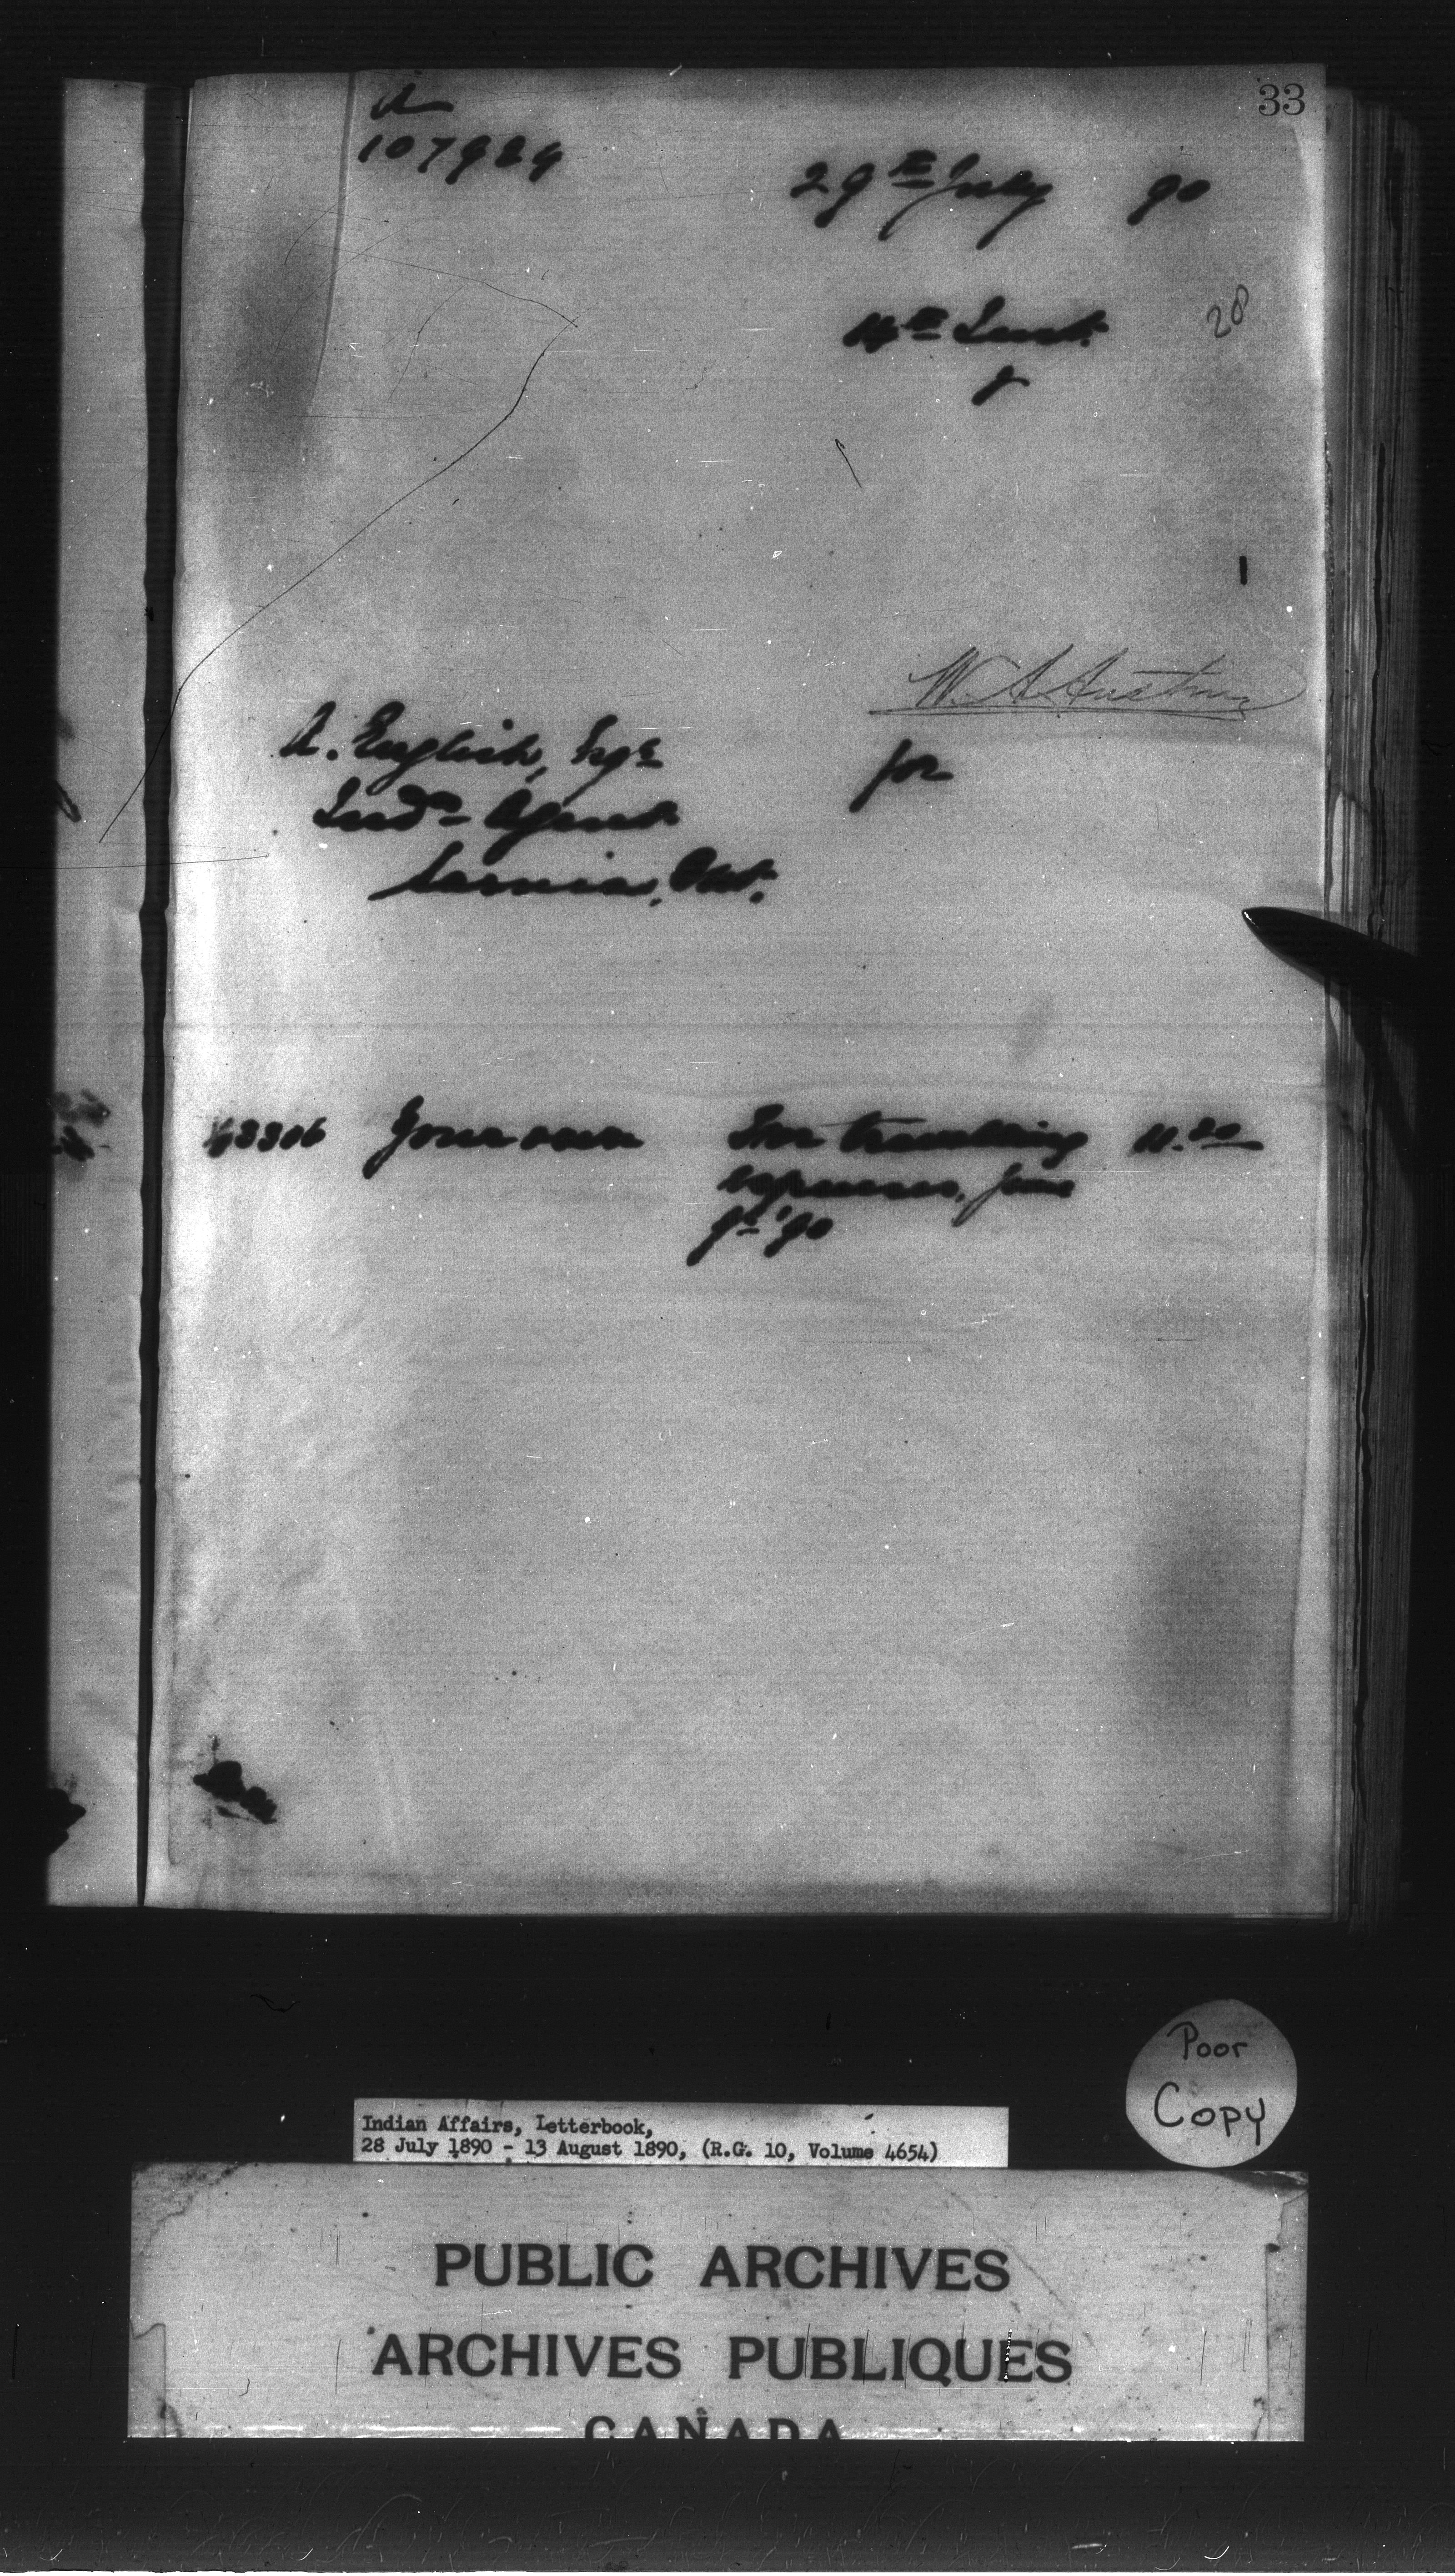 33
A
107929
29th July 90
28
Inst.
W. A. Austin
A. English, Esqr
for
Indn Agent
Sarnia, Ont.
43306 Your own For travelling 11.20
expenses, June
9th '90
Poor
Copy
Indian Affairs, Letterbook,
28 July 1890 - 13 August 1890, (R.G. 10, Volume 4654)
PUBLIC ARCHIVES
ARCHIVES PUBLIQUES
CANADA